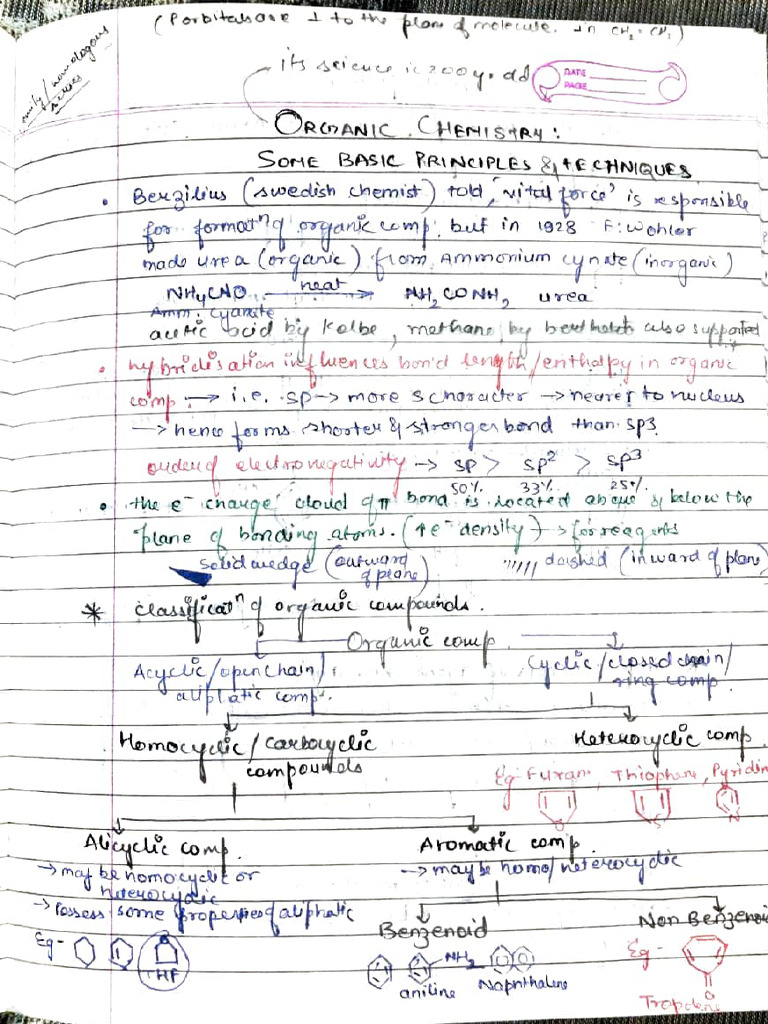 (P orbitals are ⊥ to the plane of molecule. in CH2=CH2)
family/homologous series
its science is 200 y. old
DATE
PAGE
ORGANIC CHEMISTRY:
SOME BASIC PRINCIPLES & TECHNIQUES
• Berzilius (swedish chemist) told, 'vital force' is responsible
for formatⁿ of organic comp. but in 1928 F. Wohler
made urea (organic) from Ammonium cynate (inorganic)
NH4CNO —heat→ NH2CONH2 urea
Amm. cyanate
acetic acid by Kolbe, methane by berthelot also supported it
• hybridisation influences bond length/enthalpy in organic
comp. → i.e. sp → more s character → nearer to nucleus
→ hence forms shorter & stronger bond than sp3.
order of electronegativity → sp > sp2 > sp3
50% 33% 25%
• the e⁻ charge cloud of π bond is located above & below the
plane of bonding atoms. (↑e⁻ density) → for reagents
solid wedge (outward of plane) dashed (inward of plane)
* classificatⁿ of organic compounds.
Organic comp.
Acyclic/open chain/ Cyclic/closed chain/
aliphatic comp. ring comp
Homocyclic/carbocyclic Heterocyclic comp.
compounds
Eg Furan, Thiophene, Pyridin
O S N
Alicyclic comp. Aromatic comp.
→ may be homocyclic or → may be homo/heterocyclic
heterocyclic
→ Possess some properties of aliphatic
Benzenoid Non Benzenoi
Eg - THF NH2 Eg -
aniline Naphthalene O
Tropolene